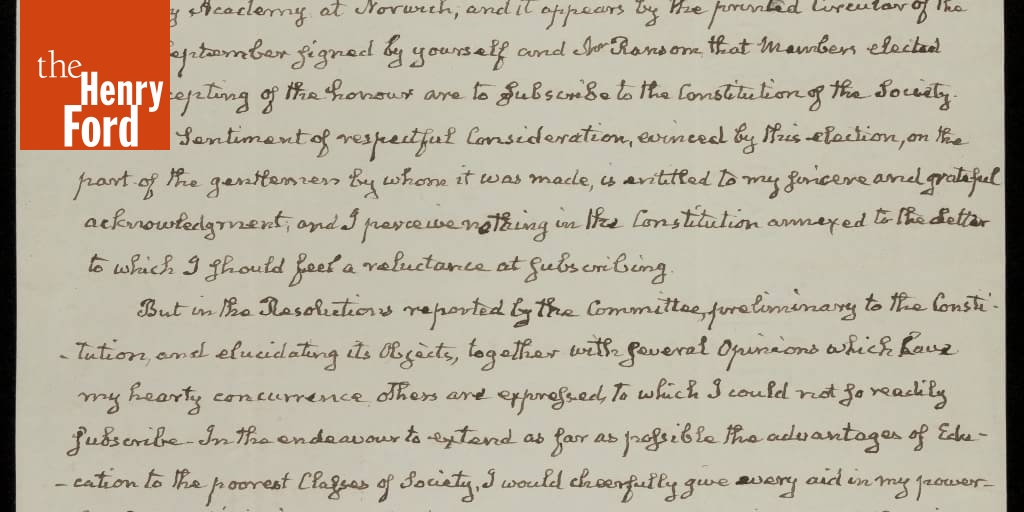 the
Henry
Ford
y Academy at Norwich, and it appears by the printed Circular of the
eptember signed by yourself and Mr Ransom that Members elected
cepting of the honour are to subscribe to the Constitution of the Society.
Sentiment of respectful Consideration, evinced by this election, on the
part of the gentlemen by whom it was made, is entitled to my sincere and grateful
acknowledgment; and I perceive nothing in the Constitution annexed to the Letter
to which I should feel a reluctance at subscribing.
But in the Resolutions reported by the Committee, preliminary to the Consti-
-tution, and elucidating its Objects, together with several Opinions which have
my hearty concurrence others are expressed, to which I could not so readily
subscribe - In the endeavour to extend as far as possible the advantages of Edu-
-cation to the poorest Classes of Society, I would cheerfully give every aid in my power-